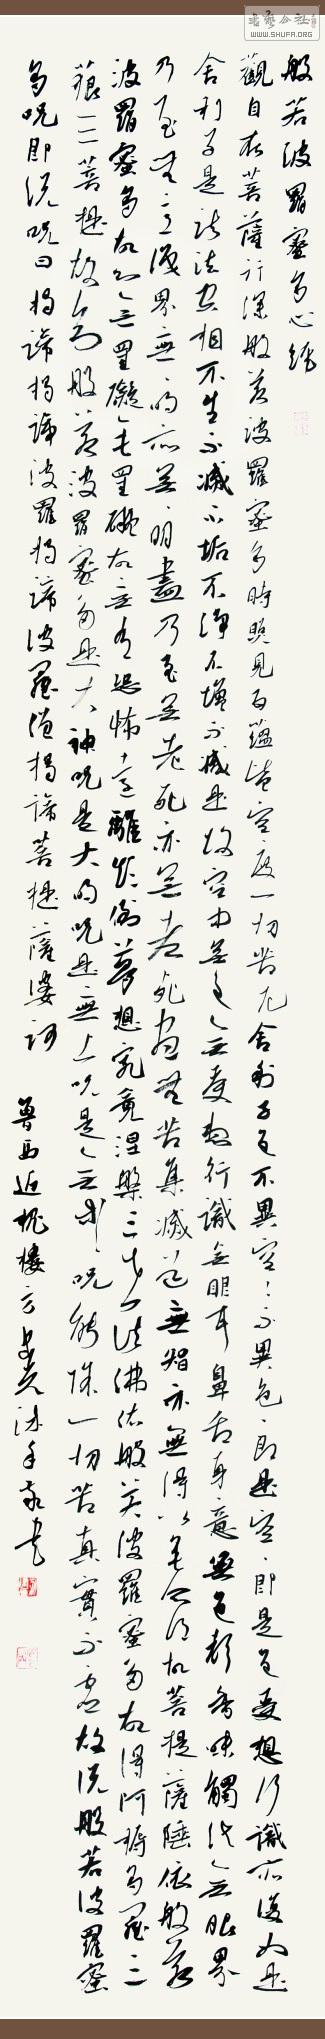 书艺公社
WWW.SHUFA.ORG
般若波羅蜜多心經
觀自在菩薩行深般若波羅蜜多時照見五蘊皆空度一切苦厄舍利子色不異空空不異色色即是空空即是色受想行識亦復如是
舍利子是諸法空相不生不滅不垢不淨不增不減是故空中無色無受想行識無眼耳鼻舌身意無色聲香味觸法無眼界
乃至無意識界無無明亦無無明盡乃至無老死亦無老死盡無苦集滅道無智亦無得以無所得故菩提薩陲依般若
波羅蜜多故心無罣礙無罣礙故無有恐怖遠離顛倒夢想究竟涅槃三世諸佛依般若波羅蜜多故得阿耨多羅三
藐三菩提故知般若波羅蜜多是大神咒是大明咒是無上咒是無等等咒能除一切苦真實不虛故說般若波羅蜜
多咒即說咒曰揭諦揭諦波羅揭諦波羅僧揭諦菩提薩婆訶 魯西近槐樓主